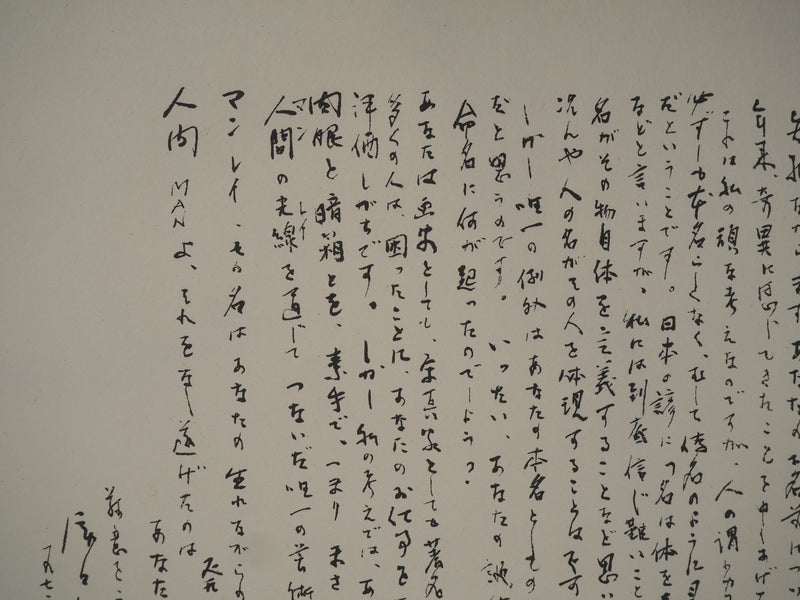 失礼ながらまずあなたのお名前につい
年来、奇異に感じてきたことを申しあげ
これは私の頑な考えなのですが、人の謂
必ずしも本名らしくなく、むしろ偽名のように
だということです。日本の諺に「名は体を
などと言いますが、私には到底信じ難いこと
名がその物自体を定義することなど思い
況んや人の名がその人を体現することはです
しかし唯一の例外はあなたの本名としての
だと思うのです。いったい、あなたの誕
命名に何が起ったのでしょう?
あなたは画家としても、写真家としても著名
多くの人は、困ったことに、あなたのお仕事を
評価しがちです。しかし私の考えでは、あ
肉眼と暗箱とを、素手で、つまり
人間の光線を通じてつないだ唯一の芸術
マン レイ
マン レイ、その名はあなたの生れながらの
人間 MANよ、それをなし遂げたのは
あなた
敬意を